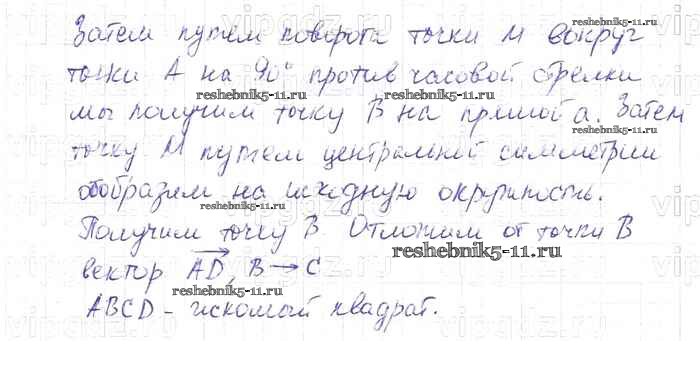 Затем путем поворота точки М вокруг
точки А на 90° против часовой стрелки
мы получим точку В на прямой а. Затем
точку М путем центральной симметрии
отобразим на исходную окружность.
Получим точку В. Отложим от точки В
вектор AD, B → C
ABCD - искомый квадрат.
reshebnik5-11.ru
reshebnik5-11.ru
reshebnik5-11.ru
reshebnik5-11.ru
reshebnik5-11.ru
reshebnik5-11.ru
reshebnik5-11.ru